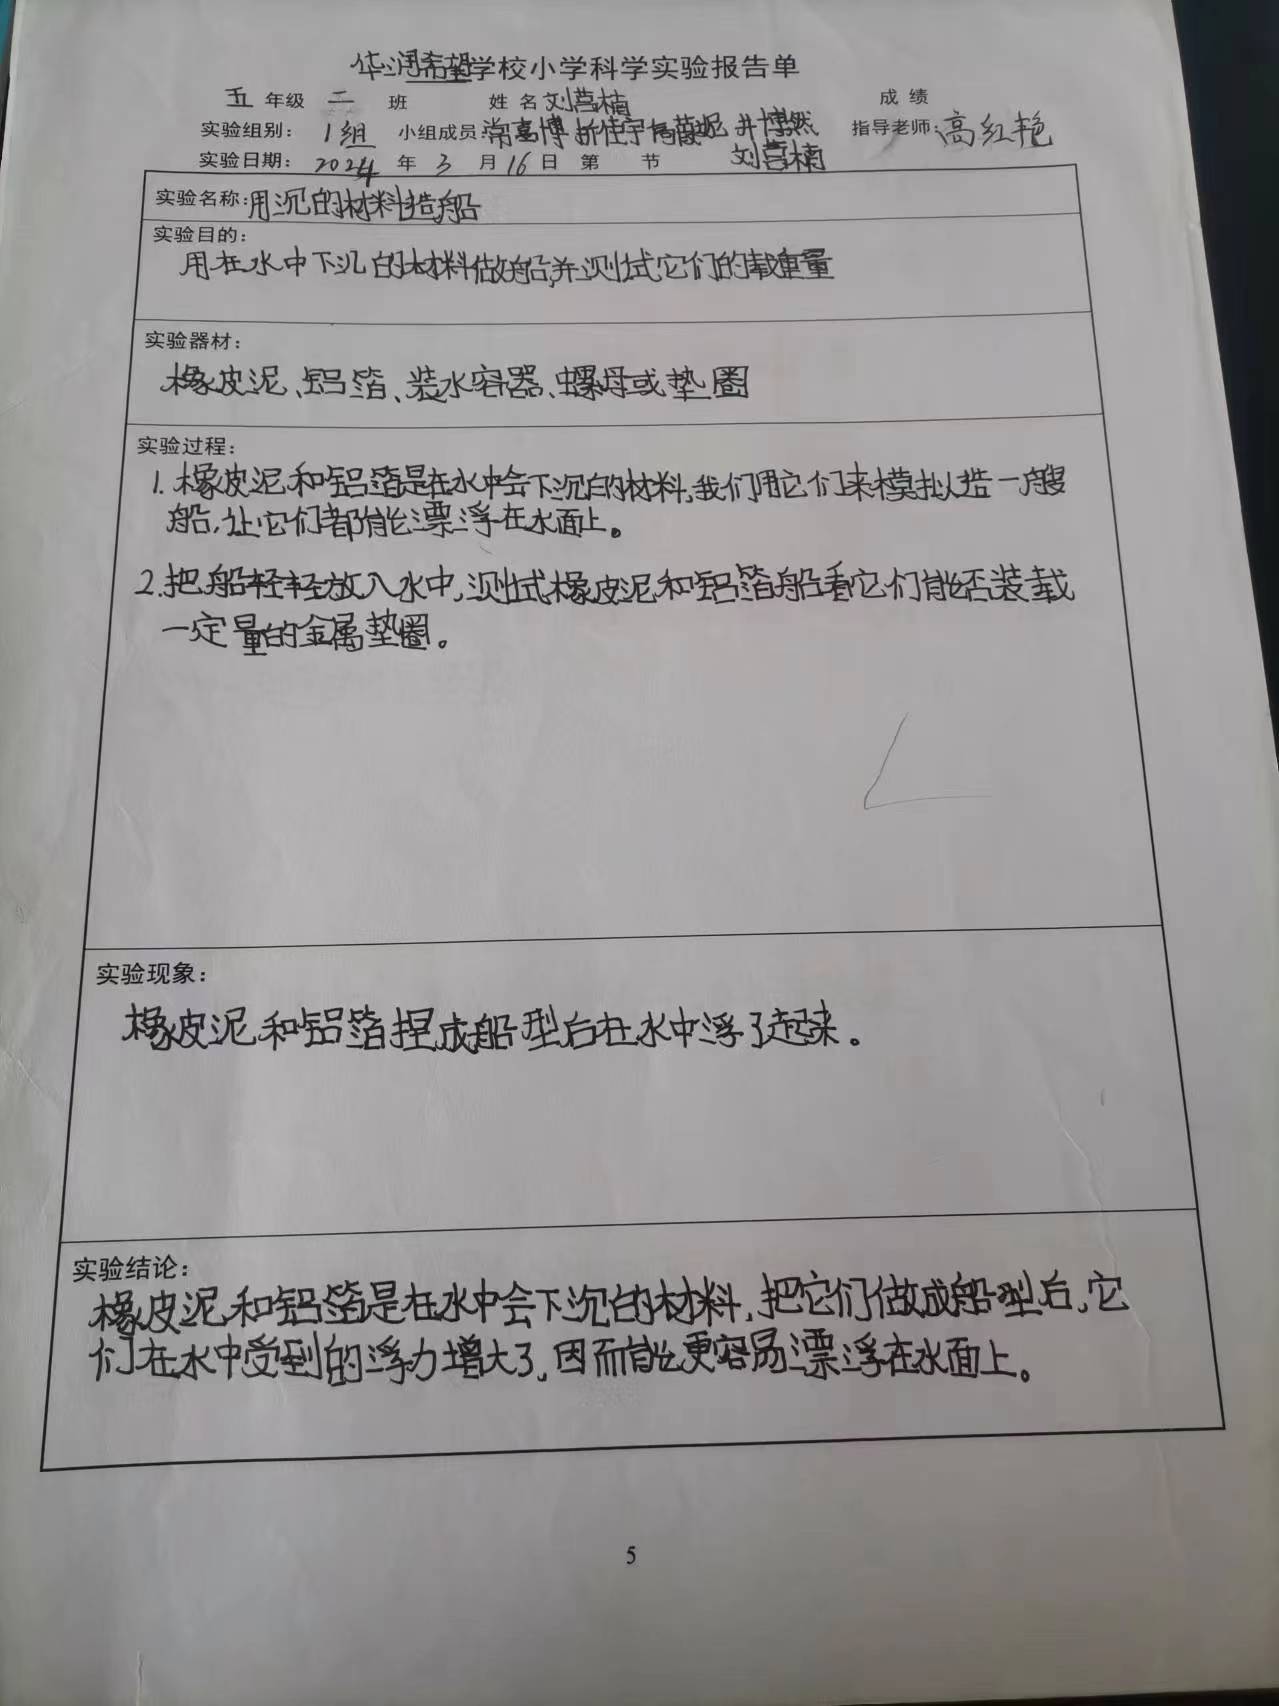 华润希望学校小学科学实验报告单
五 年级 二 班 姓 名 刘营楠 成 绩
实验组别: 1组 小组成员: 常嘉博 靳佳宇 井博然 指导老师: 高红艳
刘营楠
实验日期: 2024 年 3 月 16 日 第 节
实验名称: 用沉的材料造船
实验目的:
用在水中下沉的材料做船,并测试它们的载重量
实验器材:
橡皮泥、铝箔、装水容器、螺母或垫圈
实验过程:
1. 橡皮泥和铝箔是在水中会下沉的材料,我们用它们来模拟造一艘
船,让它们都能漂浮在水面上。
2. 把船轻轻放入水中,测试橡皮泥和铝箔船看它们能否装载
一定量的金属垫圈。
实验现象:
橡皮泥和铝箔捏成船型后在水中浮了起来。
实验结论:
橡皮泥和铝箔是在水中会下沉的材料,把它们做成船型后,它
们在水中受到的浮力增大了,因而能更容易漂浮在水面上。
5